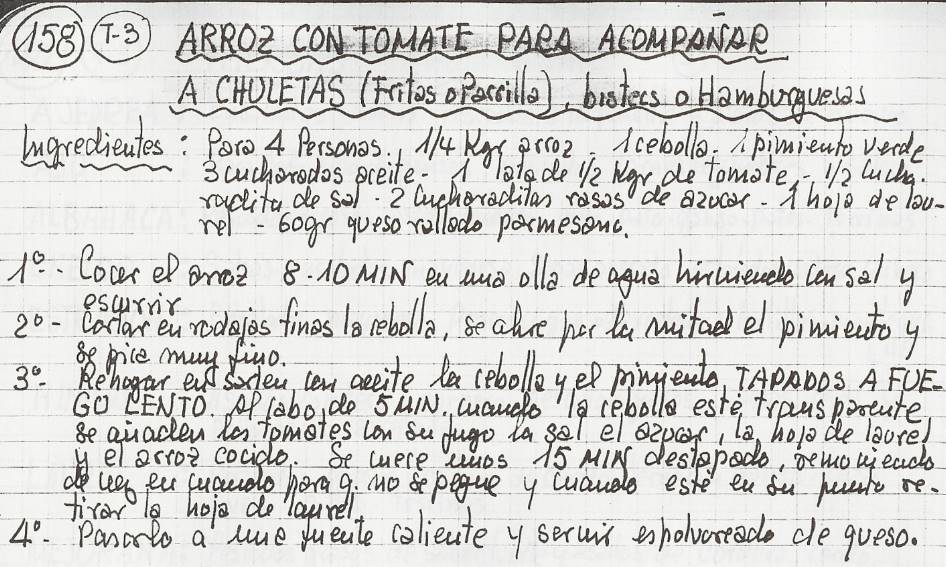 158 T-3 ARROZ CON TOMATE PARA ACOMPAÑAR
A CHULETAS (Fritas o Parrilla), bistecs o Hamburguesas
Ingredientes: Para 4 Personas. 1/4 Kgr arroz - 1 cebolla - 1 pimiento verde
3 cucharadas aceite - 1 lata de 1/2 Kgr de Tomate, - 1/2 cucha-
radita de sal - 2 cucharaditas rasas de azucar - 1 hoja de lau-
rel - 60gr queso rallado parmesano.
1º - Cocer el arroz 8-10 MIN en una olla de agua hirviendo con sal y
escurrir
2º - Cortar en rodajas finas la cebolla, se abre por la mitad el pimiento y
se pica muy fino.
3º - Rehogar en sarten con aceite la cebolla y el pimiento, TAPADOS A FUE-
GO LENTO. Al cabo de 5 MIN. cuando la cebolla esté transparente
se añaden los tomates con su jugo la sal el azucar, la hoja de laurel
y el arroz cocido. Se cuece unos 15 MIN destapado, removiendo
de vez en cuando para q. no se pegue y cuando esté en su punto re-
tirar la hoja de laurel.
4º - Pasarlo a una fuente caliente y servir espolvoreado de queso.